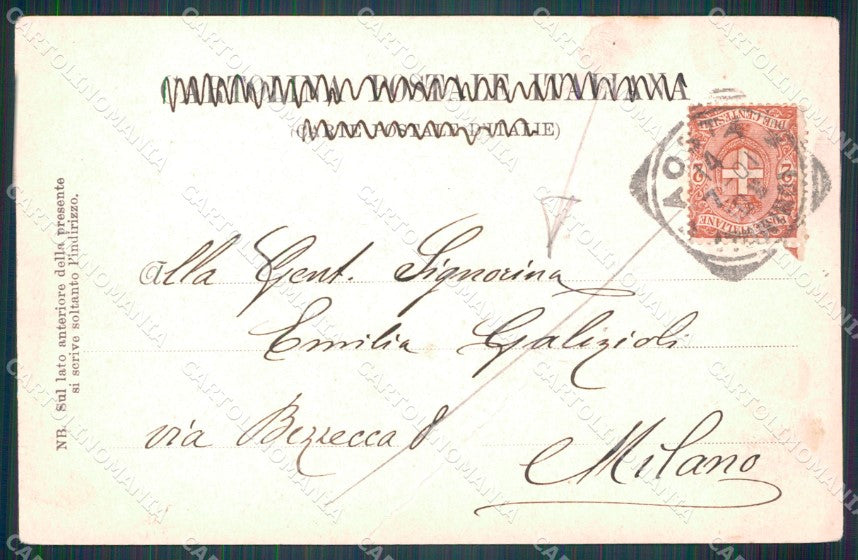 CARTOLINA POSTALE ITALIANA
(CARTE POSTALE D'ITALIE)
AOSTA
2 PER CENTESIMI 2
POSTE ITALIANE
alla Gent. Signorina
Emilia Galizioli
via Bezzecca 8
Milano
NB. Sul lato anteriore della presente
si scrive soltanto l'indirizzo.
CARTOLINOMANIA